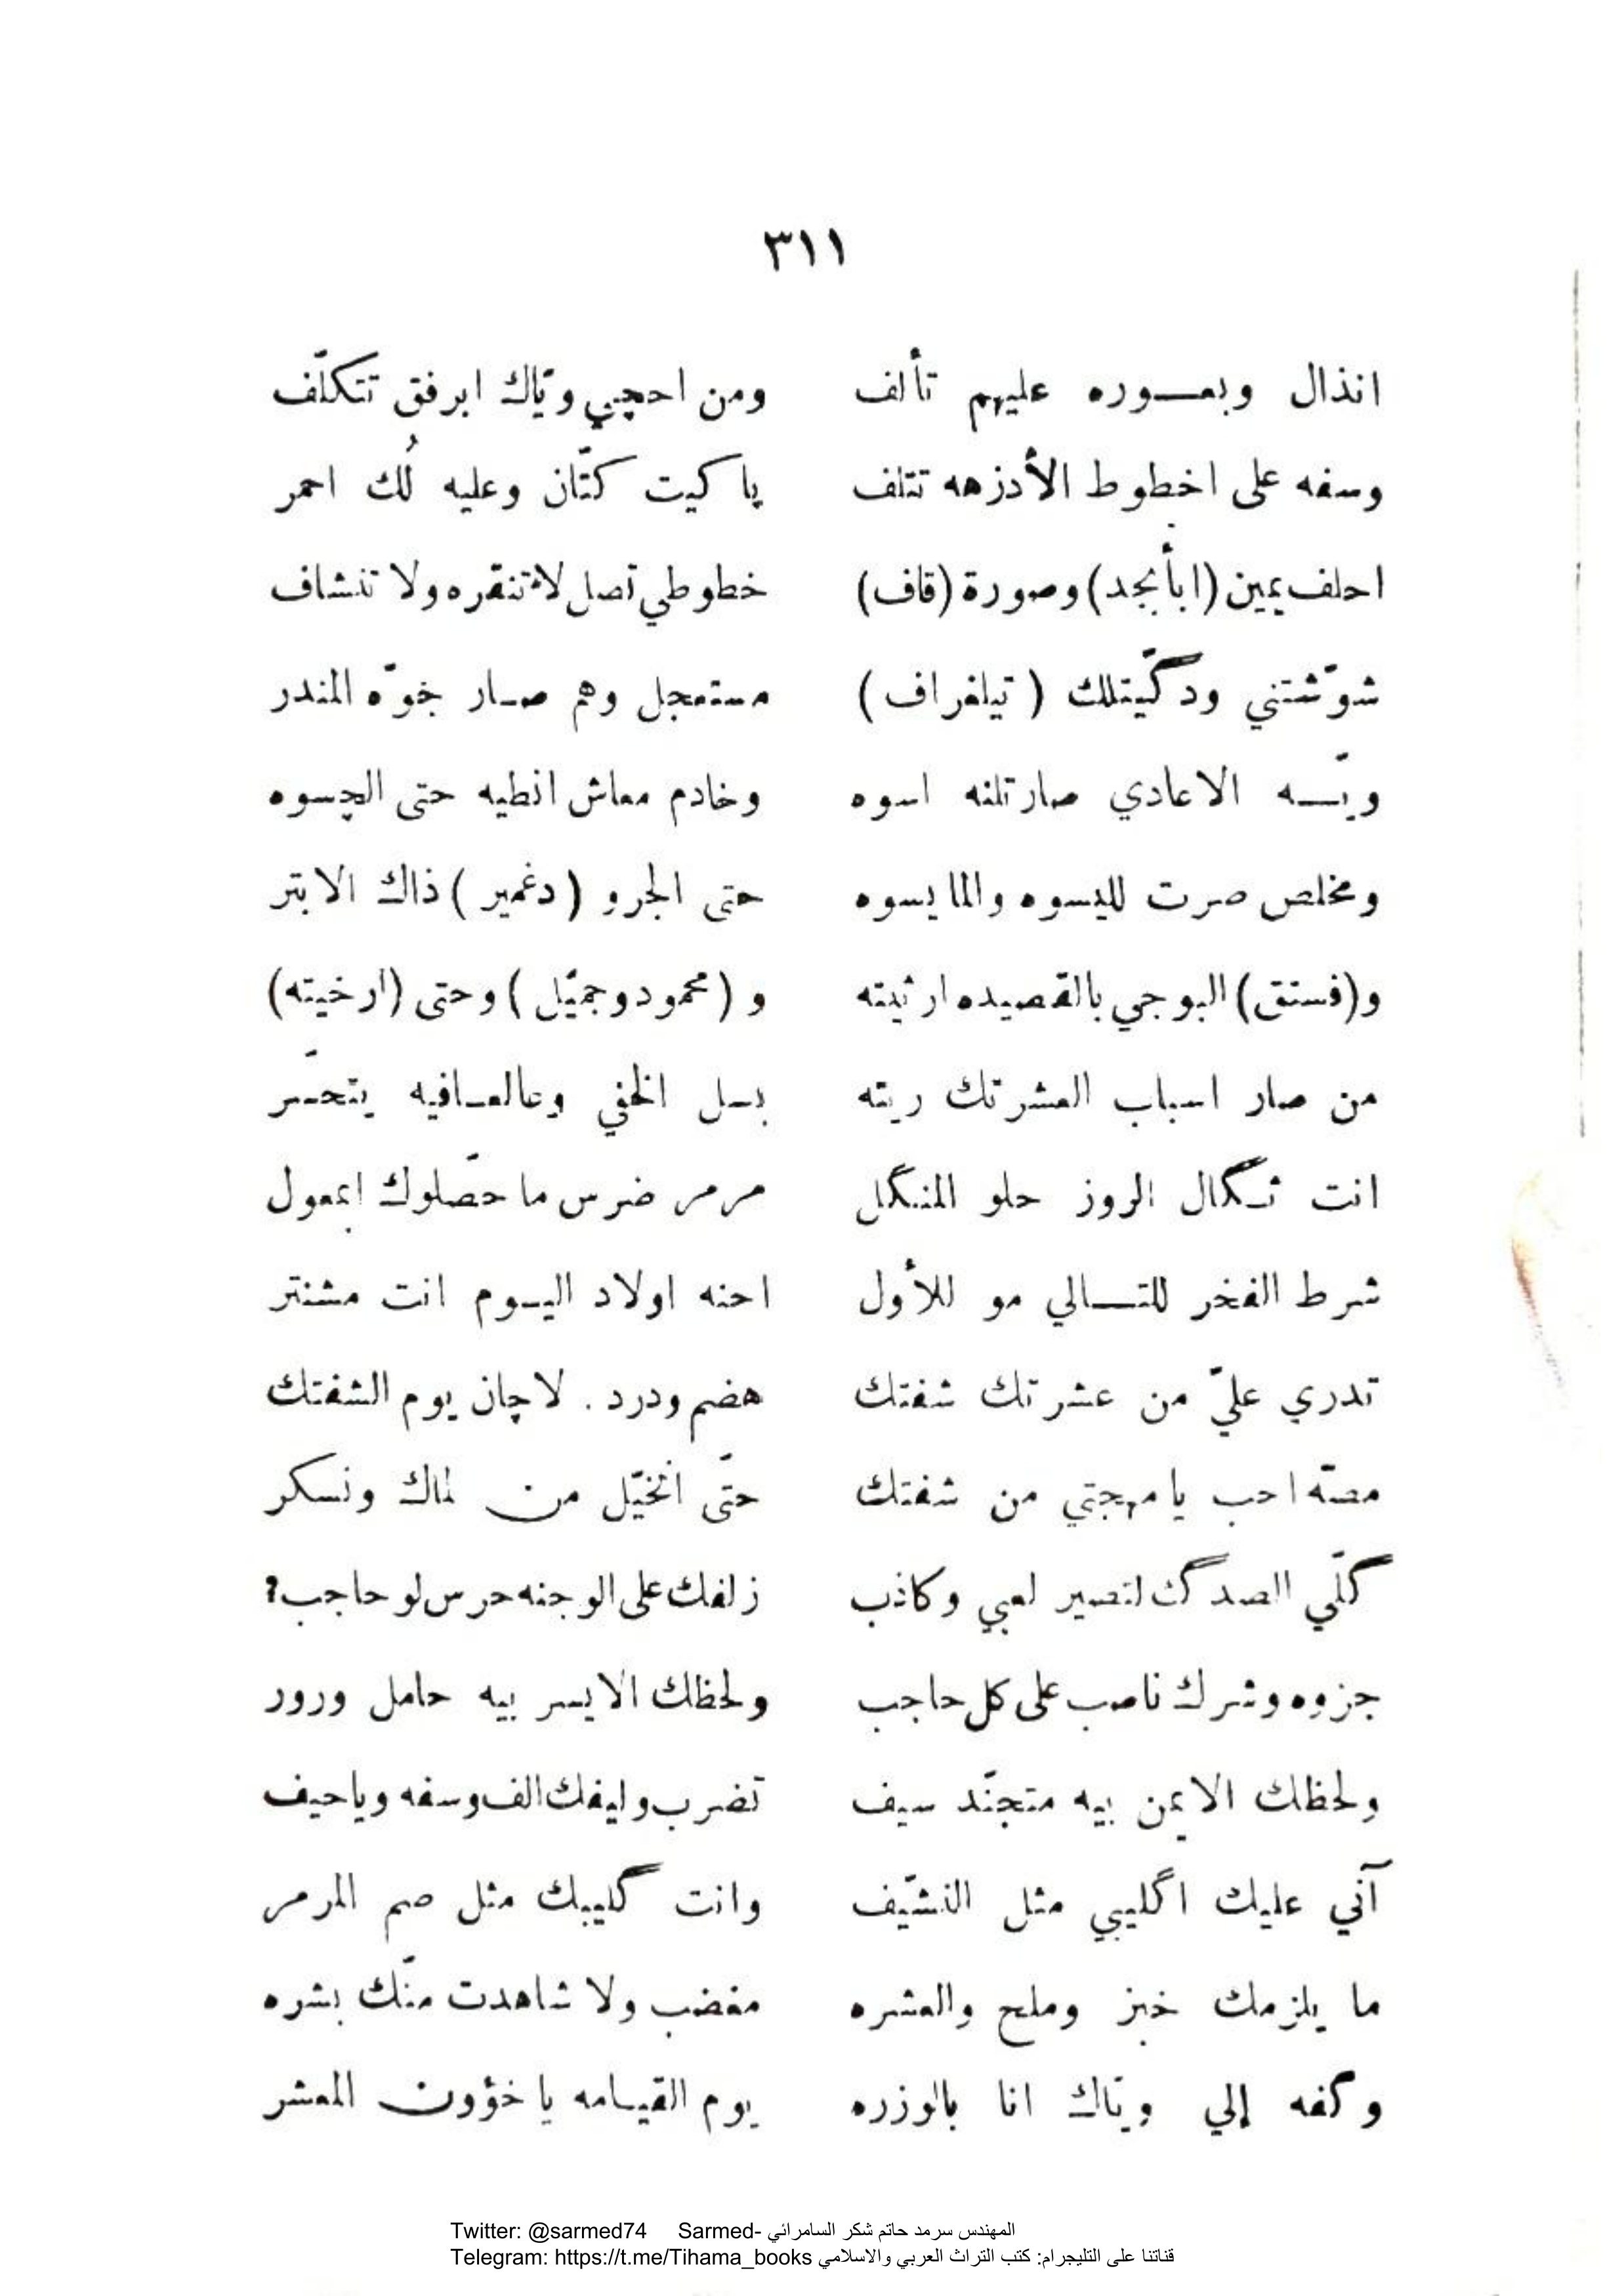 ٣١١
انذال وبعـــوره عليهم تألف ومن احچي ويّاك ابرفق تتكلّف
وسفه على اخطوط الأدزهه تتلف ياكيت كتّان وعليه لُك احمر
احلف يمين (ابأبجد) وصورة (قاف) خطوطي تصل لا تنقره ولا تنشاف
شوّشتني ودگيتلك (تيلغراف) مستعجل وهم صار خوّه المندر
ويّسه الاعادي صارتلنه اسوه وخادم معاش انطيه حتى الچسوه
ومخلص صرت لليسوه والمايسوه حتى الجرو (دغمير) ذاك الابتر
و(فستق) البوجي بالقصيده ارثيته و (محمود وجميّل) وحتى (أرخيته)
من صار اسباب العشرتك ريته بسل الخفي وعالعافيه يتحسّر
انت ثگال الروز حلو المنگل مرمر ضرس ما حصّلوك ابمعول
شرط الفخر للتـــالي مو للأول احنه اولاد اليوم انت مشنتر
تدري عليّ من عشرتك شفتك هضم ودرد . لاچان يوم الشفتك
مصّه احب يا مهجتي من شفتك حتّى انخيّل من لماك ونسكر
گلّي الصدگ لتصير لعبي وكاذب زلفك على الوجنه حرس لو حاجب؟
جزوه وشرك ناصب على كل حاجب ولحظك الايسر بيه حامل ورور
ولحظك الايمن بيه متجنّد سيف تضرب وليفك الف وسفه وياحيف
آنّي عليك اگليبي مثل النشّيف وانت گليبك مثل صم المرمر
ما يلزمك خبز وملح والعشره مغضب ولا شاهدت منّك بشره
وگفه إلي ويّاك انا بالوزره يوم القيامه يا خؤون المعشر
Twitter: @sarmed74 Sarmed- المهندس سرمد حاتم شكر السامرائي
Telegram: https://t.me/Tihama_books قناتنا على التليجرام: كتب التراث العربي والاسلامي